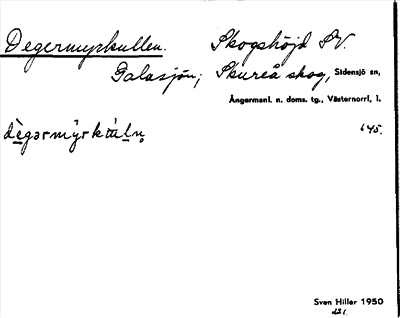 Degermyrkullen. Skogshöjd SV.
Galasjön; Skureå skog, Sidensjö sn,
Ångermanl. n. doms. tg., Västernorrl. l.
dègərmýrkul̥n̥ 645.
Sven Hiller 1950